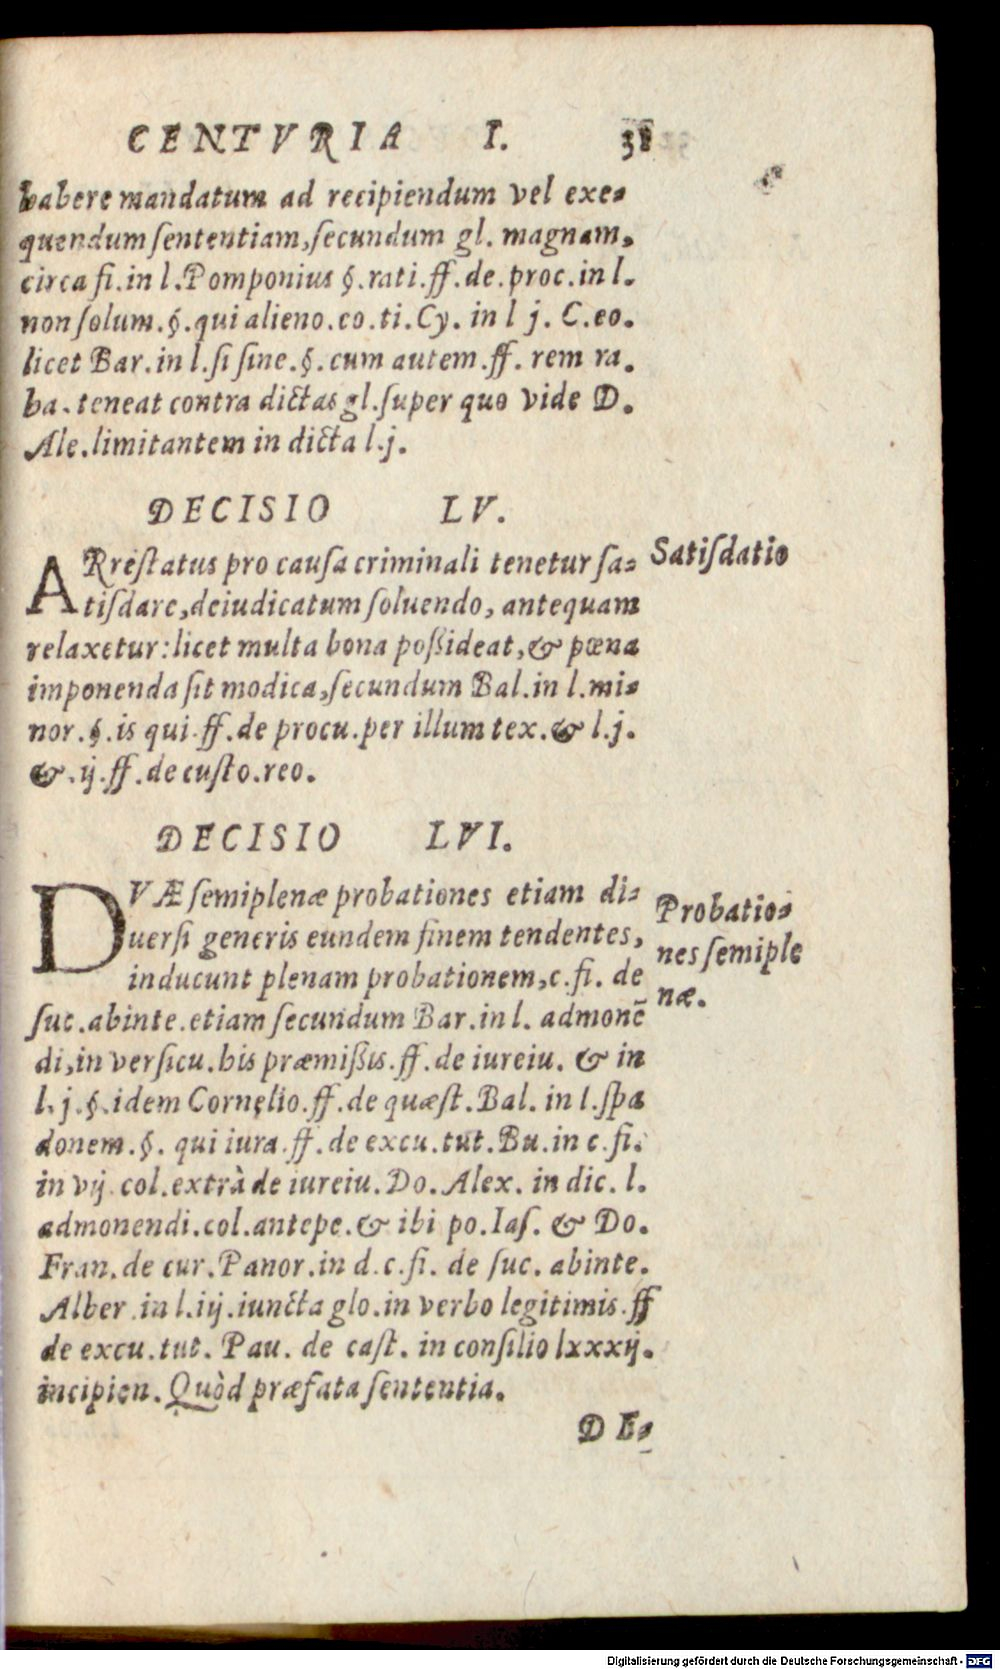 CENTVRIA I. 38
habere mandatum ad recipiendum vel exe-
quendum ſententiam, ſecundum gl. magnam,
circa fi. in l. Pomponius §. rati. ff. de. proc. in l.
non ſolum. §. qui alieno. eo. ti. Cy. in l j. C. eo.
licet Bar. in l. ſi ſine. §. cum autem. ff. rem ra.
ha. teneat contra dictas gl. ſuper quo vide D.
Ale. limitantem in dicta l. j.
DECISIO LV.
ARreſtatus pro cauſa criminali tenetur ſa-
Satiſdatio
tiſdare, deiudicatum ſoluendo, antequam
relaxetur: licet multa bona poßideat, & pœna
imponenda ſit modica, ſecundum Bal. in l. mi-
nor. §. is qui. ff. de procu. per illum tex. & l. j.
&. ij. ff. de cuſto. reo.
DECISIO LVI.
DVÆ ſemiplenæ probationes etiam di-
Probatio-
uerſi generis eundem finem tendentes,
nes ſemiple
inducunt plenam probationem, c. fi. de
næ.
ſuc. abinte. etiam ſecundum Bar. in l. admonē
di, in verſicu. his præmißis. ff. de iureiu. & in
l. j. §. idem Cornelio. ff. de quæſt. Bal. in l. ſpa
donem. §. qui iura. ff. de excu. tut. Bu. in c. fi.
in vij. col. extrà de iureiu. Do. Alex. in dic. l.
admonendi. col. antepe. & ibi po. Iaſ. & Do.
Fran. de cur. Panor. in d. c. fi. de ſuc. abinte.
Alber. in l. iij. iuncta glo. in verbo legitimis. ff
de excu. tut. Pau. de caſt. in conſilio lxxxij.
incipien. Quòd præfata ſententia.
DE-
Digitalisierung gefördert durch die Deutsche Forschungsgemeinschaft - DFG